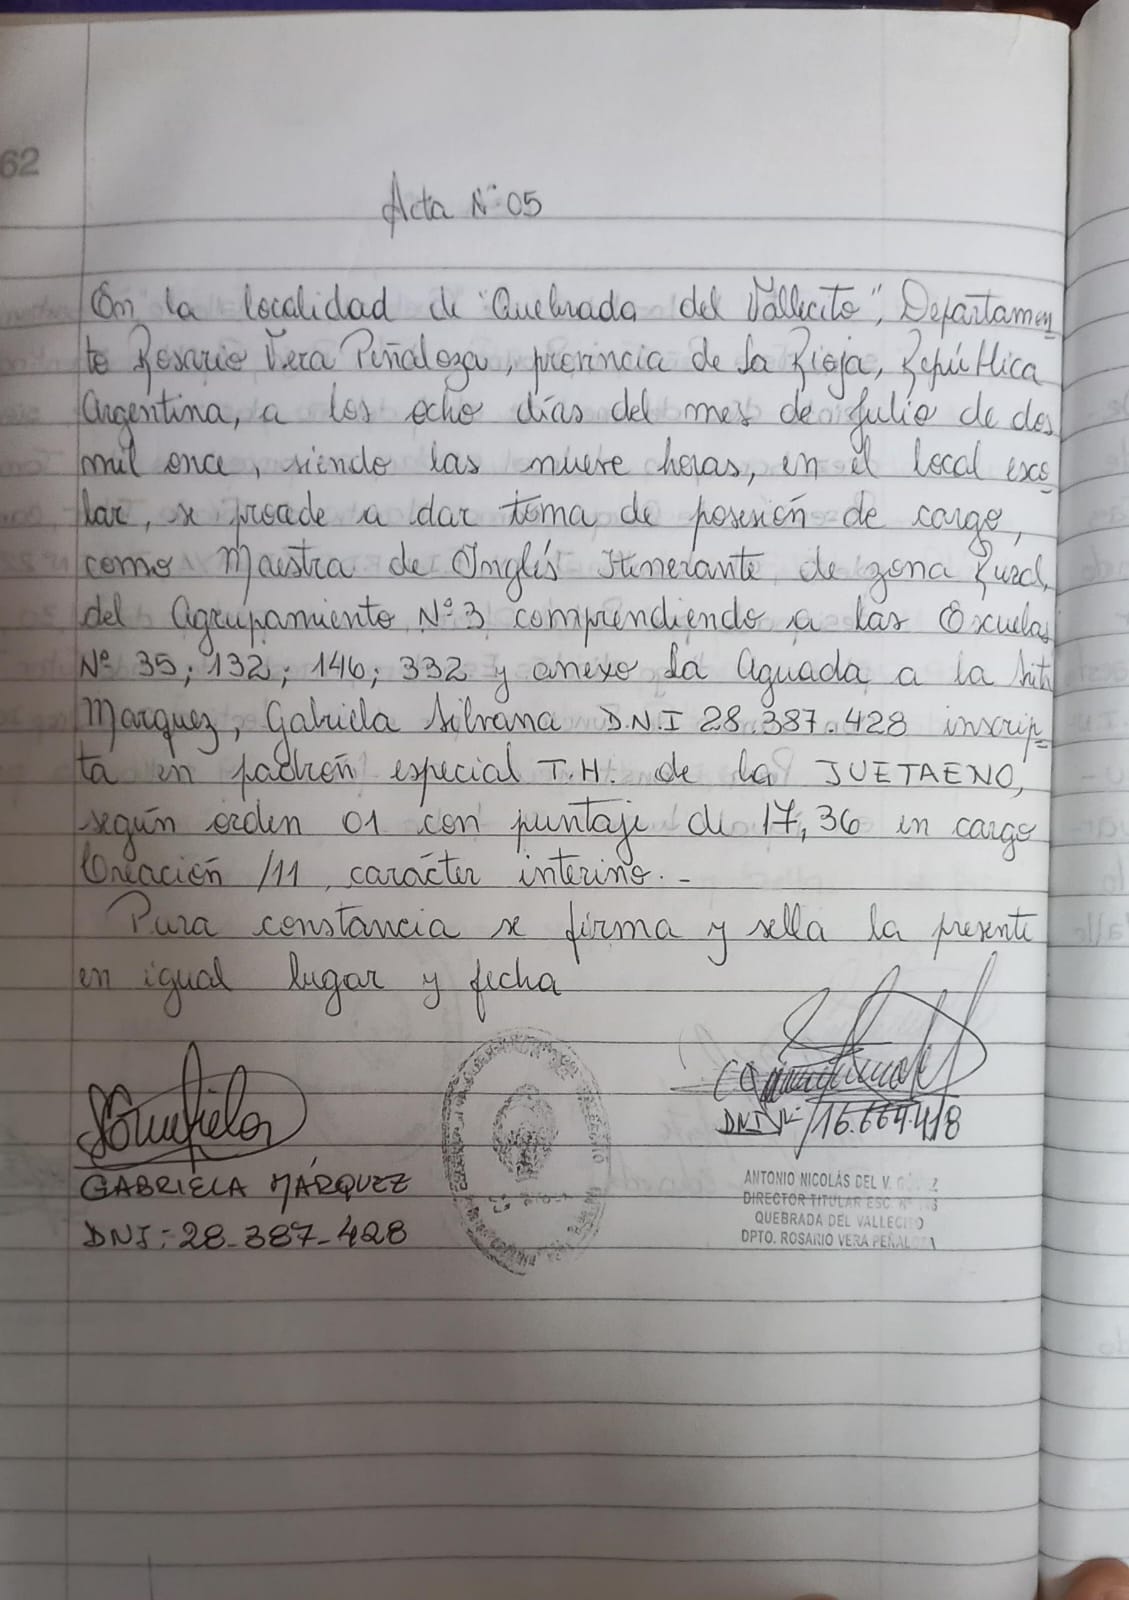 62
Acta N° 05
En la localidad de "Quebrada del Vallecito", Departamen
to Rosario Vera Peñaloza, provincia de La Rioja, República
Argentina, a los ocho días del mes de Julio de dos
mil once, siendo las nueve horas, en el local esco
lar, se procede a dar toma de posesión de cargo,
como Maestra de Inglés Itinerante de zona Rural,
del Agrupamiento N° 3 comprendiendo a las Escuelas
N° 35; 132; 146; 332 y anexo La Aguada a la
Marquez, Gabriela Silvana D.N.I 28.387.428 inscrip
ta en padrón especial T.H. de la JUETAENO,
según orden 01 con puntaje de 17,36 en cargo
Creación /11, carácter interino.-
Para constancia se firma y sella la presente
en igual lugar y fecha
GABRIELA MÁRQUEZ
DNI: 28-387-428
DNI N° 16.664.418
ANTONIO NICOLÁS DEL V.
DIRECTOR TITULAR ESC.
QUEBRADA DEL VALLECITO
DPTO. ROSARIO VERA PEÑALOZA